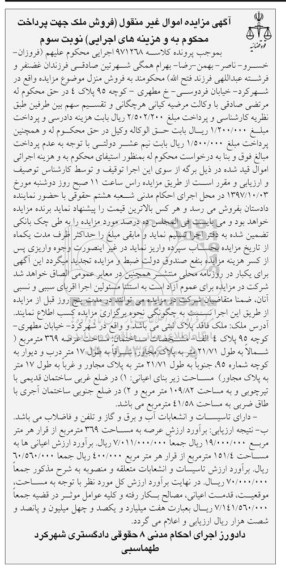 آگهی مزایده اموال غیر منقول (فروش ملک جهت پرداخت
محکوم به و هزینه های اجرایی) نوبت سوم
بموجب پرونده کلاسه ۹۷۱۲۶۸ اجرایی محکوم علیهم (فروزان-
خسرو- ناصر- بهمن- رضا- بهرام همگی شهرتین صادقی فرزندان غضنفر و
فرشته عبداللهی فرزند فتح الله) محکومند به فروش منزل موضوع مزایده واقع در
شهرکرد- خیابان فردوسی- خ مطهری - کوچه ۹۵ پلاک ۴ در حق محکوم له
مرتضی صادقی با وکالت مرضیه کیانی هرچگانی و تقسیم سهم بین طرفین طبق
نظریه کارشناسی و پرداخت مبلغ ۲/۵۰۲/۲۰۰ ریال بابت هزینه دادرسی و پرداخت
مبلغ ۱/۲۰۰/۰۰۰ ریال بابت حق الوکاله وکیل در حق محکوم له و همچنین
پرداخت مبلغ ۱/۵۰۰/۰۰۰ ریال بابت نیم عشر دولتی با توجه به عدم پرداخت
مبالغ فوق و بنا به درخواست محکوم له بمنظور استیفای محکوم به و هزینه اجرائی
اموال قید شده در ذیل برگه از سوی این اجرا توقیف و توسط کارشناس توصیف
و ارزیابی و مقرر است از طریق مزایده راس ساعت ۱۱ صبح روز دوشنبه مورخ
۱۳۹۷/۱۰/۰۳ در محل اجرای احکام مدنی شعبه هشتم حقوقی با حضور نماینده
دادستان بفروش می رسد و هر کس بالاترین قیمت را پیشنهاد نماید برنده مزایده
خواهد بود و می بایست فی المجلس ده درصد مورد مزایده را به طی چک بانکی
تضمین شده به دفتر اجرا تسلیم نماید و مابقی مبلغ را حداکثر ظرف مدت یکماه
از تاریخ مزایده بحساب سپرده واریز نماید در غیر اینصورت وجوه واریزی پس
از کسر هزینه مزایده بنفع صندوق دولت ضبط و مزایده تجدید میگردد این آگهی
برای یکبار در روزنامه محلی منتشر همچنین در معابر عمومی الصاق خواهد شد
شرکت در مزایده برای عموم آزاد است به استثنا مسئولین اجرا اقربای سببی و نسبی
آنان، ضمنا متقاضیان شرکت در مزایده می توانند در مدت پنج روز قبل از مزایده
از طریق این اجرا نسبت به چگونگی نحوه برگزاری مزایده کسب اطلاع نمایند.
آدرس ملک: ملک فاقد پلاک ثبتی می باشد و واقع در شهرکرد- خیابان مطهری-
کوچه ۹۵ پلاک ۴ الف- مشخصات ساختمان: مساحت عرصه ۳۶۹ مترمربع (
شمالاً به طول ۲۱/۷۱ متر به پلاک مجاور، شرقاً به طول ۱۷ متر درب و دیوار به
کوچه شماره ۹۵، جنوبا به طول ۲۱/۷۱ متر به پلاک مجاور و غربا به طول ۱۷ متر
به پلاک مجاور) مساحت زیر بنای اعیانی: ۱) در ضلع غربی ساختمان قدیمی با
تیرچوبی و به مساحت ۱۰۹/۸۲ متر مربع و ۲) در ضلع جنوبی ساختمان آجری با
طاق ضربی به مساحت ۴۱/۵۸ متر مربع می باشد.
- دارای تاسیسات و انشعابات آب و برق و گاز و تلفن و فاضلاب می باشد.
ب- نتیجه ارزیابی: برآورد ارزش عرصه به مساحت ۳۶۹ مترمربع از قرار هر متر
مربع ۱۹/۰۰۰/۰۰۰ ریال جمعا ۷/۰۱۱/۰۰۰/۰۰۰ ریال. برآورد ارزش اعیانی ها به
مساحت ۱۵۱/۴ مترمربع از قرار هر متر مربع ۴۰۰/۰۰۰ ریال جمعا ۶۰/۵۶۰/۰۰۰
ریال. برآورد ارزش تاسیسات و انشعابات متعلقه و منصوبه به شرح مذکور جمعاً
۷۰/۰۰۰/۰۰۰ ریال. در نهایت برآورد ارزش کل مورد نظر با توجه به مساحت،
موقعیت، قدمت اعیانی، مصالح بکار رفته و کلیه عوامل موثر در قضیه جمعاً
۷/۱۴۱/۵۶۰/۰۰۰ ریال بعبارت هفت میلیارد و یکصد و چهل میلیون و پانصد و
شصت هزار ریال ارزیابی و اعلام می گردد.
دادورز اجرای احکام مدنی ۸ حقوقی دادگستری شهرکرد
طهماسبی